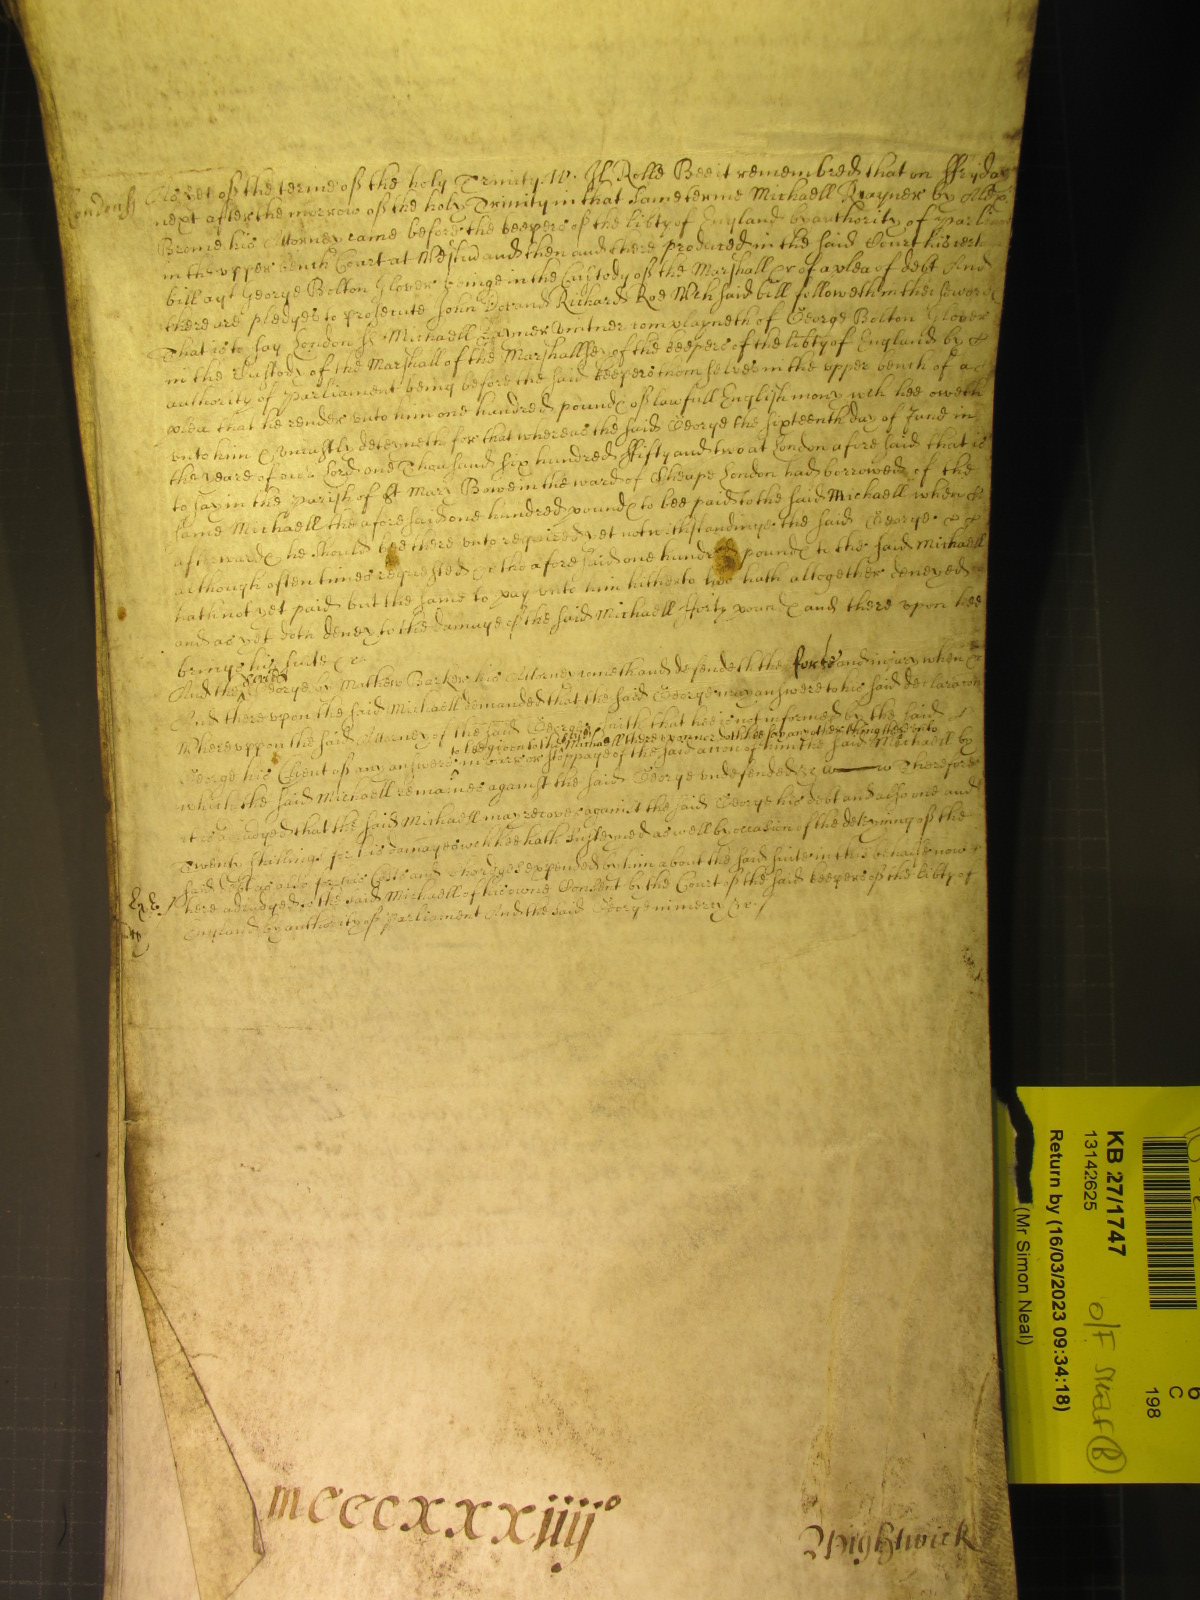 Londonss As yet of the terme of the holy Trinity W. H Rolle Bee it remembred that on ffryday
next after the morrow of the holy Trinity in that same terme Michaell Rayner by Alex
Brome his Attorney came before the keepers of the libty of England by authority of Parliam
in the upper bench Court at Westm and then and there produced in the said Court his certen
bill agt George Bolton Glover beinge in the Custody of the Marshall &c of a plea of debt And
there are pledges to prosecute John Doe and Richard Roe Wch said bill followeth in these words
That is to say London ss Michaell Rayner vintner complayneth of George Bolton Glover
in the Custody of the Marshall of the Marshallsey of the keepers of the libty of England by &
authority of Parliament being before the said keepers themselves in the upper bench of a
plea that he render unto him one hundred pounds of lawfull English mony wch hee oweth
unto him & uniustly deteyneth for that whereas the said George the sixteenth day of June in
the yeare of our Lord one Thousand six hundred ffifty and two at London aforesaid that is
to say in the parish of St Mary Bowe in the ward of Cheape London had borrowed of the
same Michaell the aforesaid one hundred pounds to bee paid to the said Michaell when &
afterwards he should bee there unto required yet notwithstandinge the said George & &
although often times requested &c the aforesaid one hundred pounds to the said Michaell
hath not yet paid but the same to pay unto him hitherto hath altogether denyed
and as yet doth deney to the damage of the said Michaell fforty pounds and there upon hee
brings his suite &c
And the said George by Mathew Barker his Attorney cometh and defendeth the force and iniury when &c
And there upon the said Michaell demanded that the said George may answere to his said declaracon
Whereuppon the said Attorney of the said George saith that hee is not informed by the said
George his Client of any answere to bee given to the said Michaell there upon nor doth hee say any other thing thereunto in barr or stoppage of the said accon of him the said Michaell by
which the said Michaell remaines against the said George undefended &c Therefore
it is adiudged that the said Michaell may recover against the said George his debt and also one and
Twenty shillings for his damages wch hee hath susteyned as well by occasion of the deteyning of the
said debt as also for his Costs and Chardges expended by him about the said suite in this behalfe now
here adiudged to the said Michaell of his owne Consent by the Court of the said keepers of the libty of
England by authority of Parliament And the said George in mercy &c
mcccxxxiiijo
Wightwick
KB 27/1747
13142625
Return by (16/03/2023 09:34:18)
(Mr Simon Neal)
O/F
6
C
198